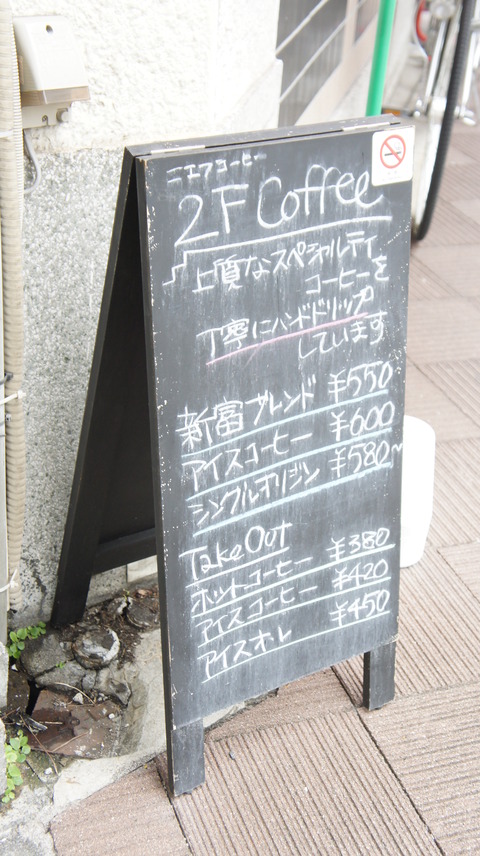 ニエフコーヒー
2F Coffee
上質なスペシャルティ
コーヒーを
丁寧にハンドドリップ
しています
新富ブレンド ¥550
アイスコーヒー ¥600
シングルオリジン ¥580~
Take Out
ホットコーヒー ¥380
アイスコーヒー ¥420
アイスオレ ¥450